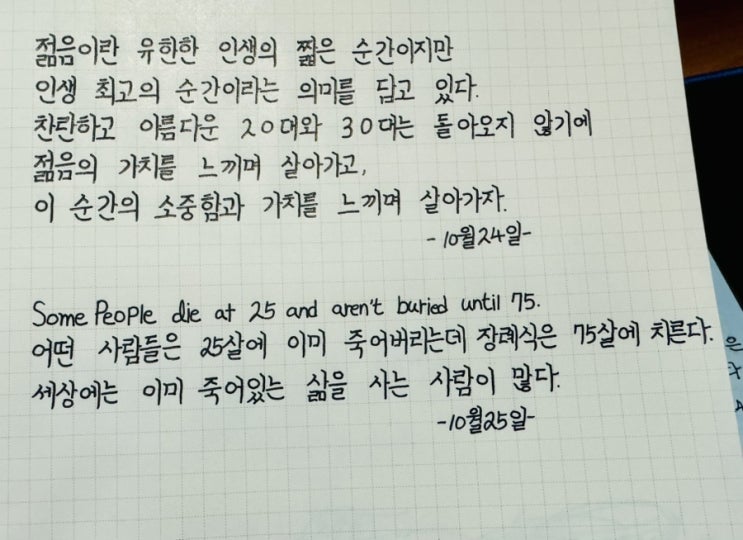 젊음이란 유한한 인생의 짧은 순간이지만
인생 최고의 순간이라는 의미를 담고 있다.
찬란하고 아름다운 20대와 30대는 돌아오지 않기에
젊음의 가치를 느끼며 살아가고,
이 순간의 소중함과 가치를 느끼며 살아가자.
-10월24일-
Some People die at 25 and aren't buried until 75.
어떤 사람들은 25살에 이미 죽어버리는데 장례식은 75살에 치른다.
세상에는 이미 죽어있는 삶을 사는 사람이 많다.
-10월25일-
은